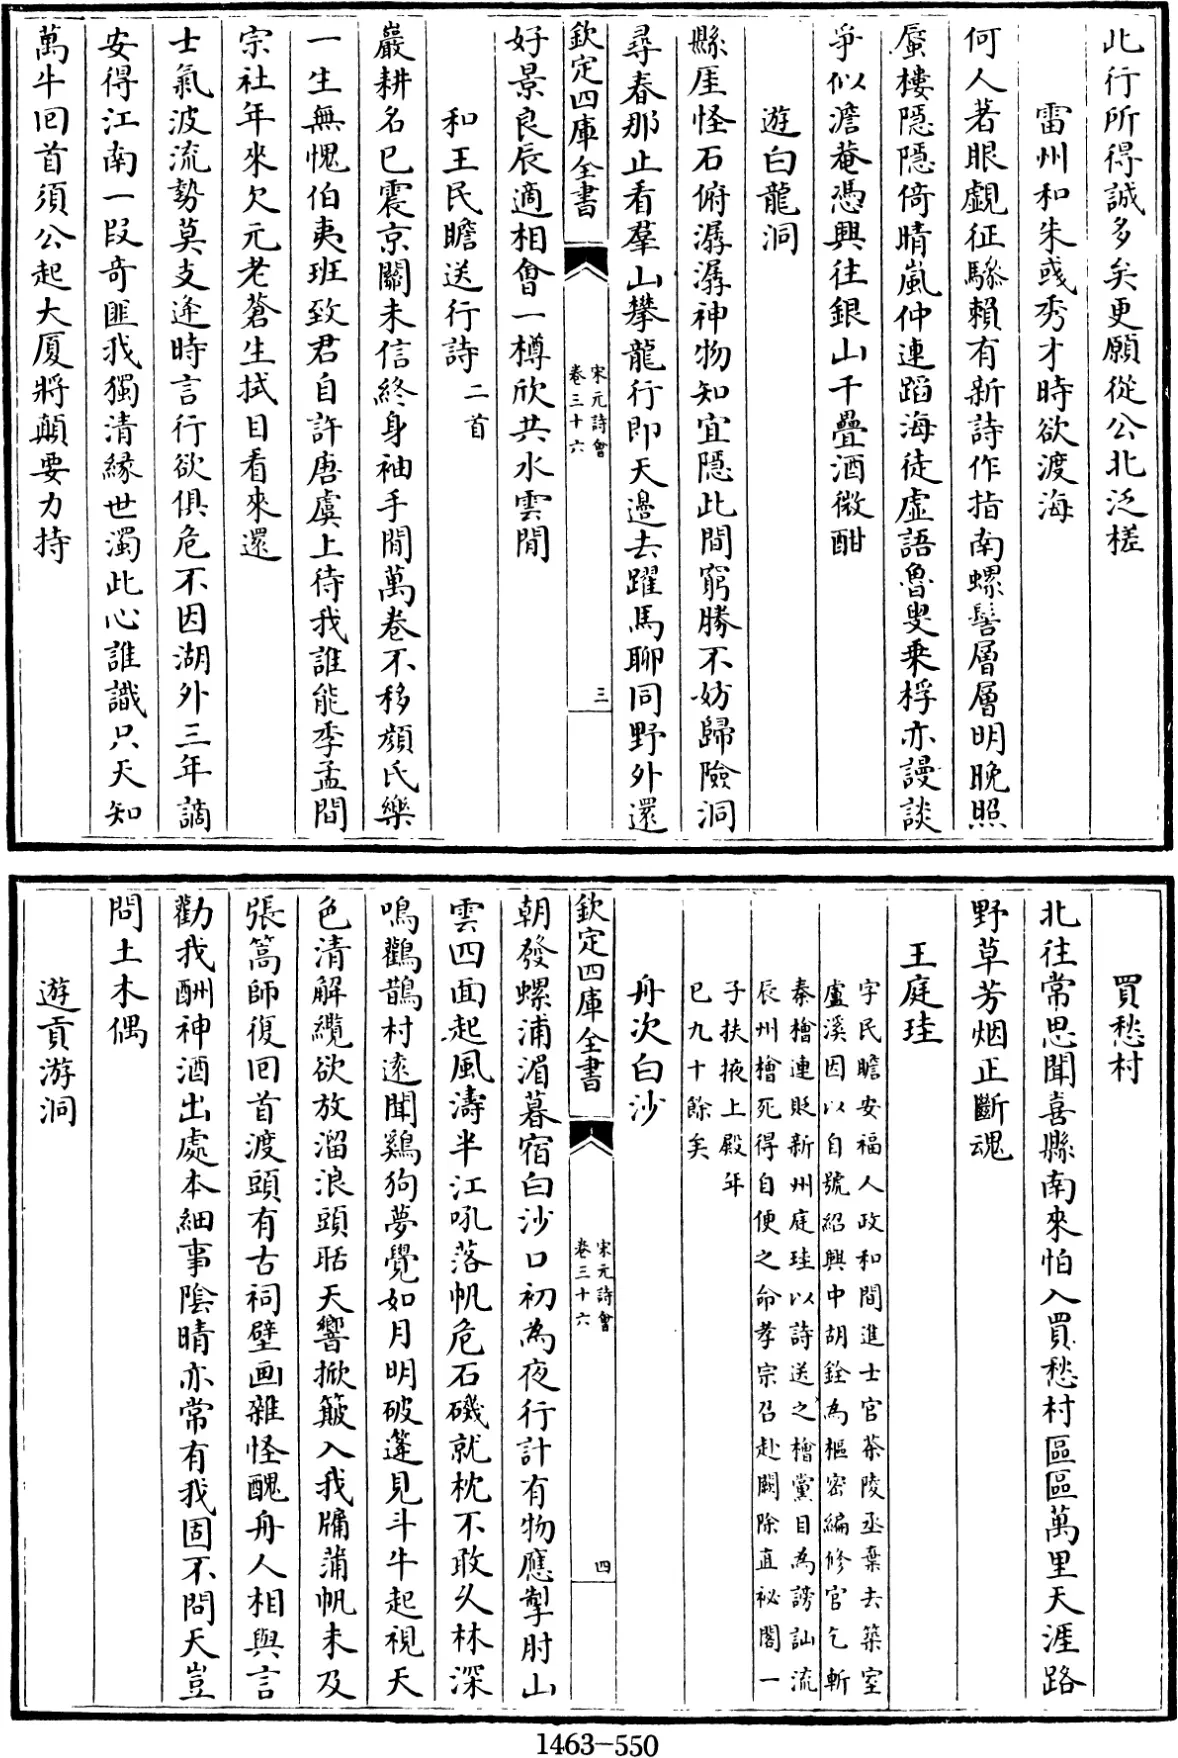 此行所得誠多矣更願從公北泛槎
雷州和朱彧秀才時欲渡海
何人著眼覷征驂賴有新詩作指南螺髻層層明晚照
蜃樓隱隱倚晴嵐仲連蹈海徒虛語魯叟乘桴亦謾談
爭似澹菴憑興往銀山千疊酒微酣
遊白龍洞
縣厓怪石俯潺潺神物知宜隱此間窮勝不妨歸險洞
尋春那止看羣山攀龍行即天邉去躍馬聊同野外還
欽定四庫全書
宋元詩會
卷三十六
三
好景良辰適相會一樽欣共水雲間
和王民瞻送行詩二首
巖耕名已震京關未信終身袖手閒萬卷不移顔氏樂
一生無愧伯夷班致君自許唐虞上待我誰能季孟間
宗社年來欠元老蒼生拭目看來還
士氣波流勢莫支逄時言行欲俱危不因湖外三年謫
安得江南一段竒匪我獨清緣世濁此心誰識只天知
萬牛回首須公起大厦將顛要力持
買愁村
北往常思聞喜縣南來怕入買愁村區區萬里天涯路
野草芳烟正斷魂
王庭珪
字民瞻安福人政和間進士官茶陵丞棄去築室
盧溪因以自號紹興中胡銓為樞密編修官乞斬
秦檜連貶新州庭珪以詩送之檜黨目為謗訕流
辰州檜死得自便之命孝宗召赴闕除直祕閣一
子扶掖上殿年
已九十餘矣
舟次白沙
欽定四庫全書
宋元詩會
卷三十六
四
朝發螺浦湄暮宿白沙口初為夜行計有物應掣肘山
雲四面起風濤半江吼落帆危石磯就枕不敢久林深
鳴鸛鵲村逺聞鷄狗夢覺如月明破蓬見斗牛起視天
色清解纜欲放溜浪頭聒天響掀簸入我牖蒲帆未及
張篙師復回首渡頭有古祠壁画雜怪醜舟人相與言
勸我酬神酒出處本細事陰晴亦常有我固不問天豈
問土木偶
遊貢游洞
1463-550